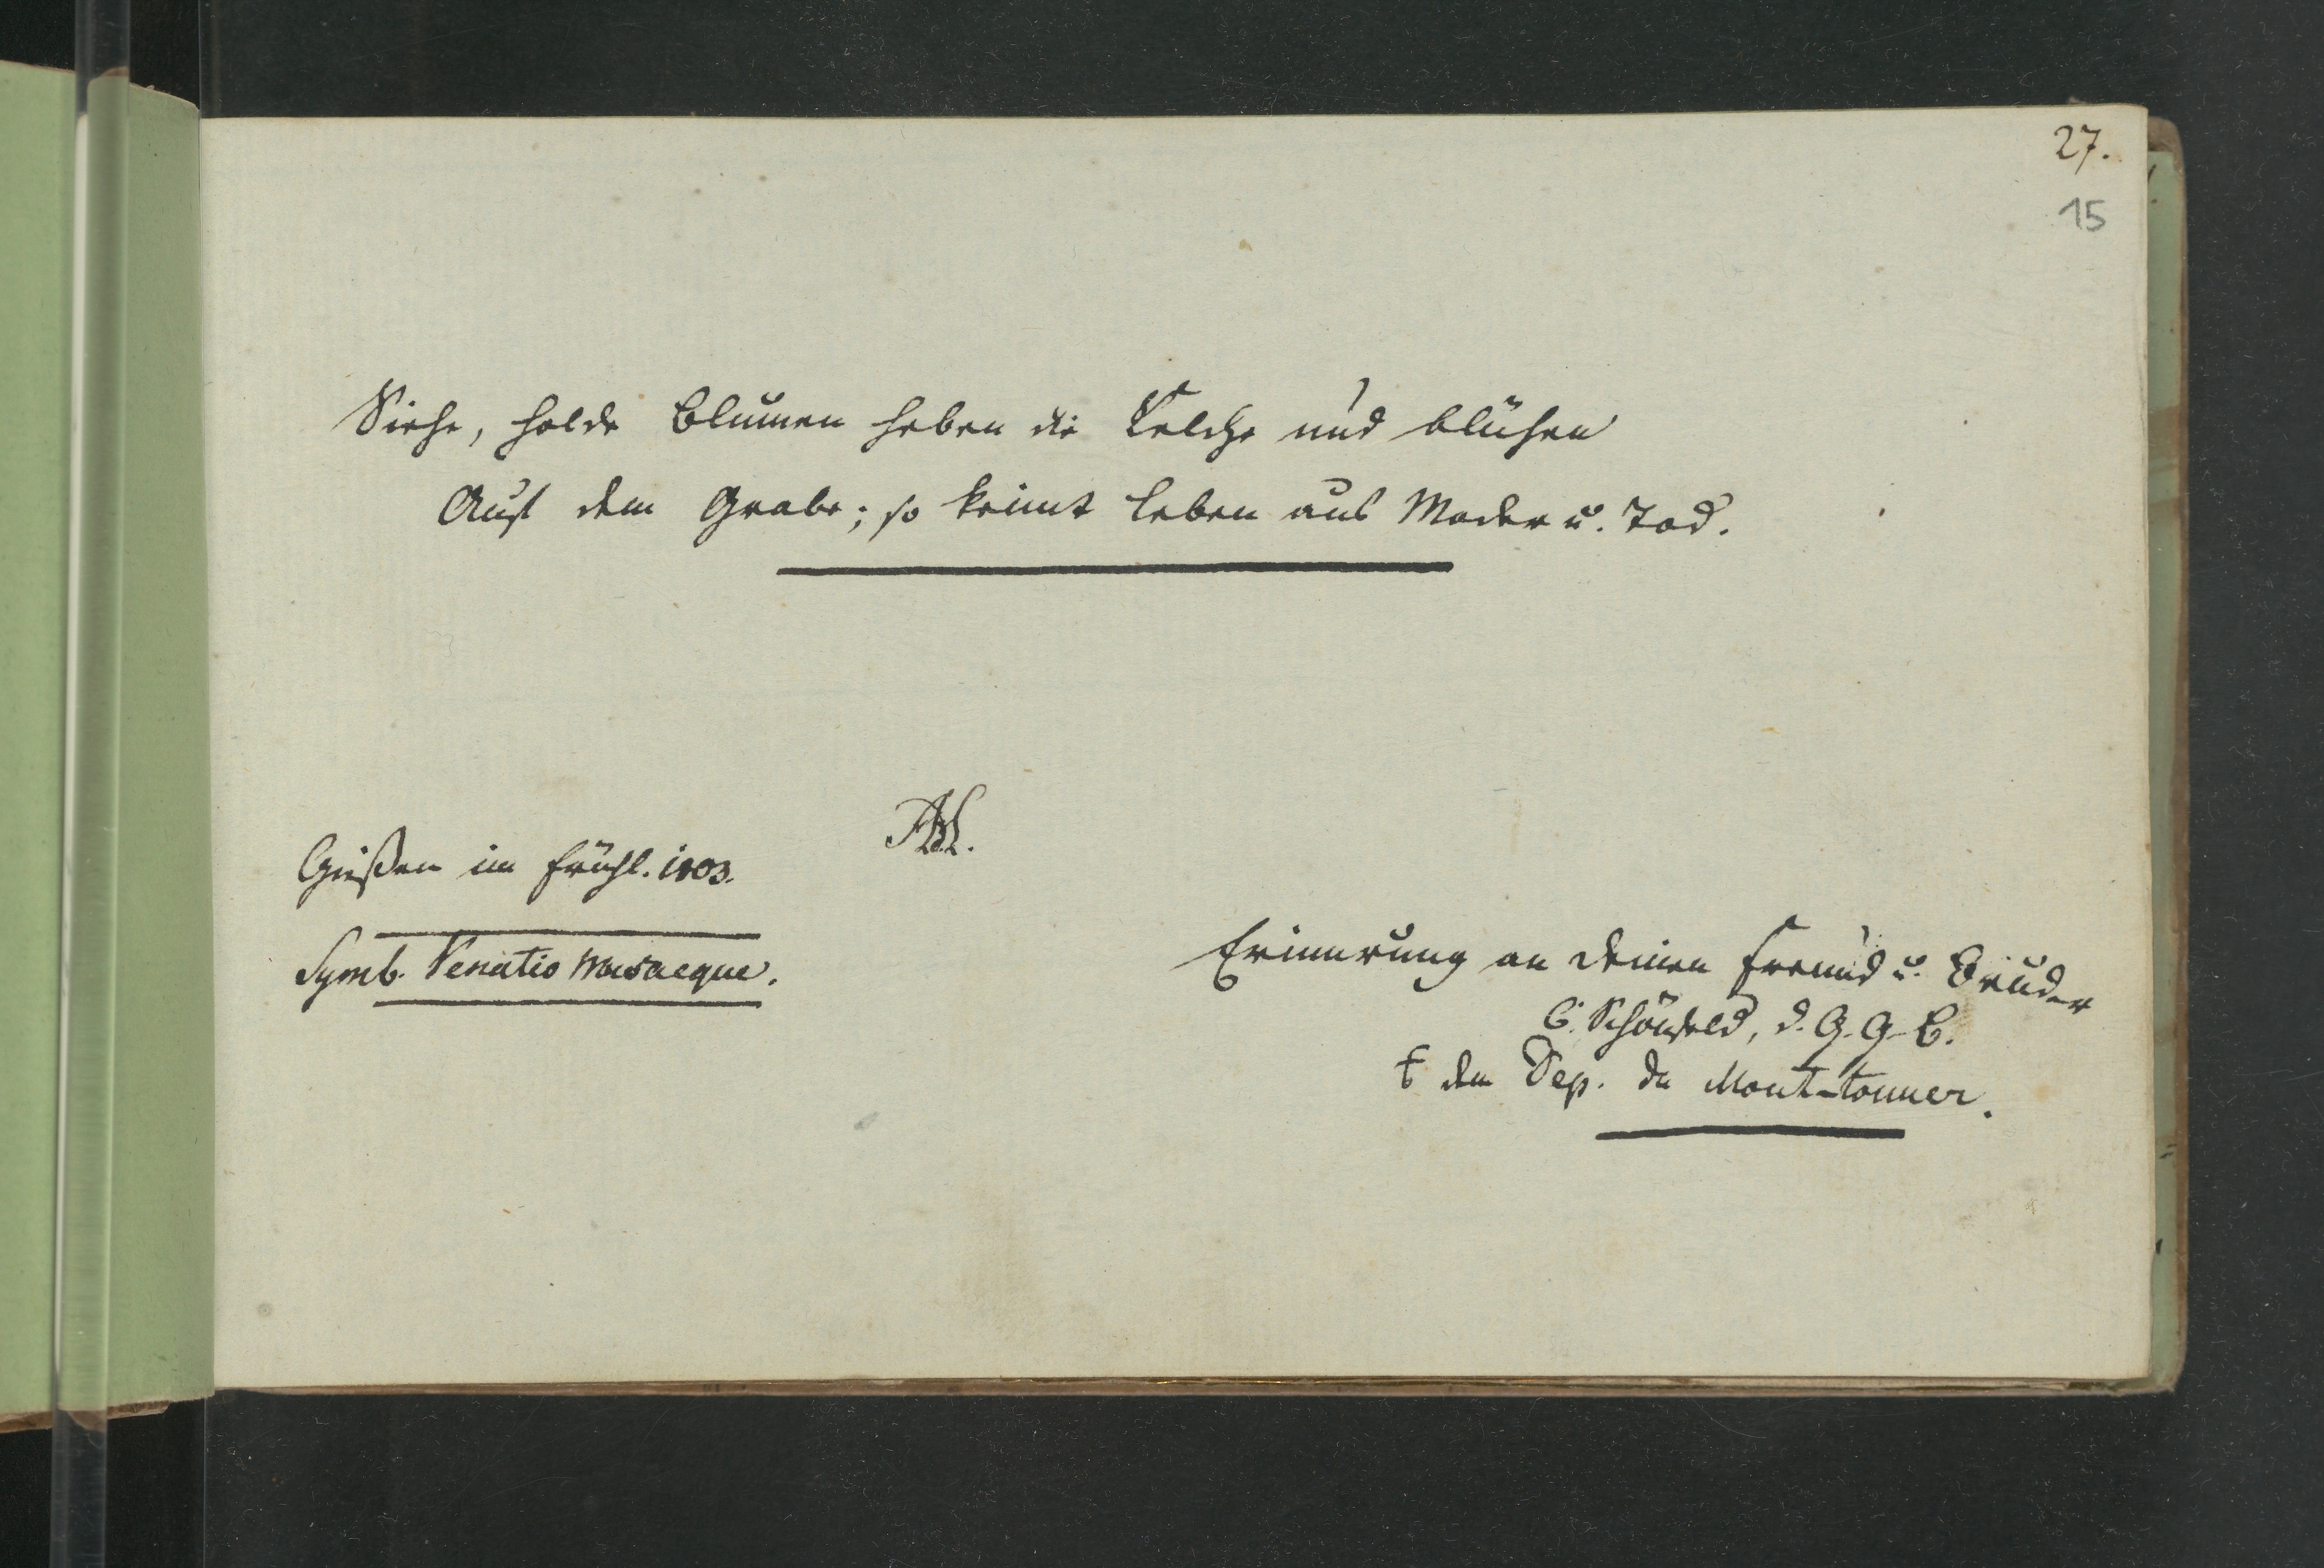 27.
15
Siehe, holde Blumen heben die Kelche und blühen
Auf dem Grabe; so keimt Leben aus Moder u. Tod.
Gießen im Frühl. 1803.
Symb. Venatio Musaeque.
Erinnrung an Deinen Freund u. Bruder
C. Schönfeld, d. G. G. B.
dem Dep. du Mont-tonner.